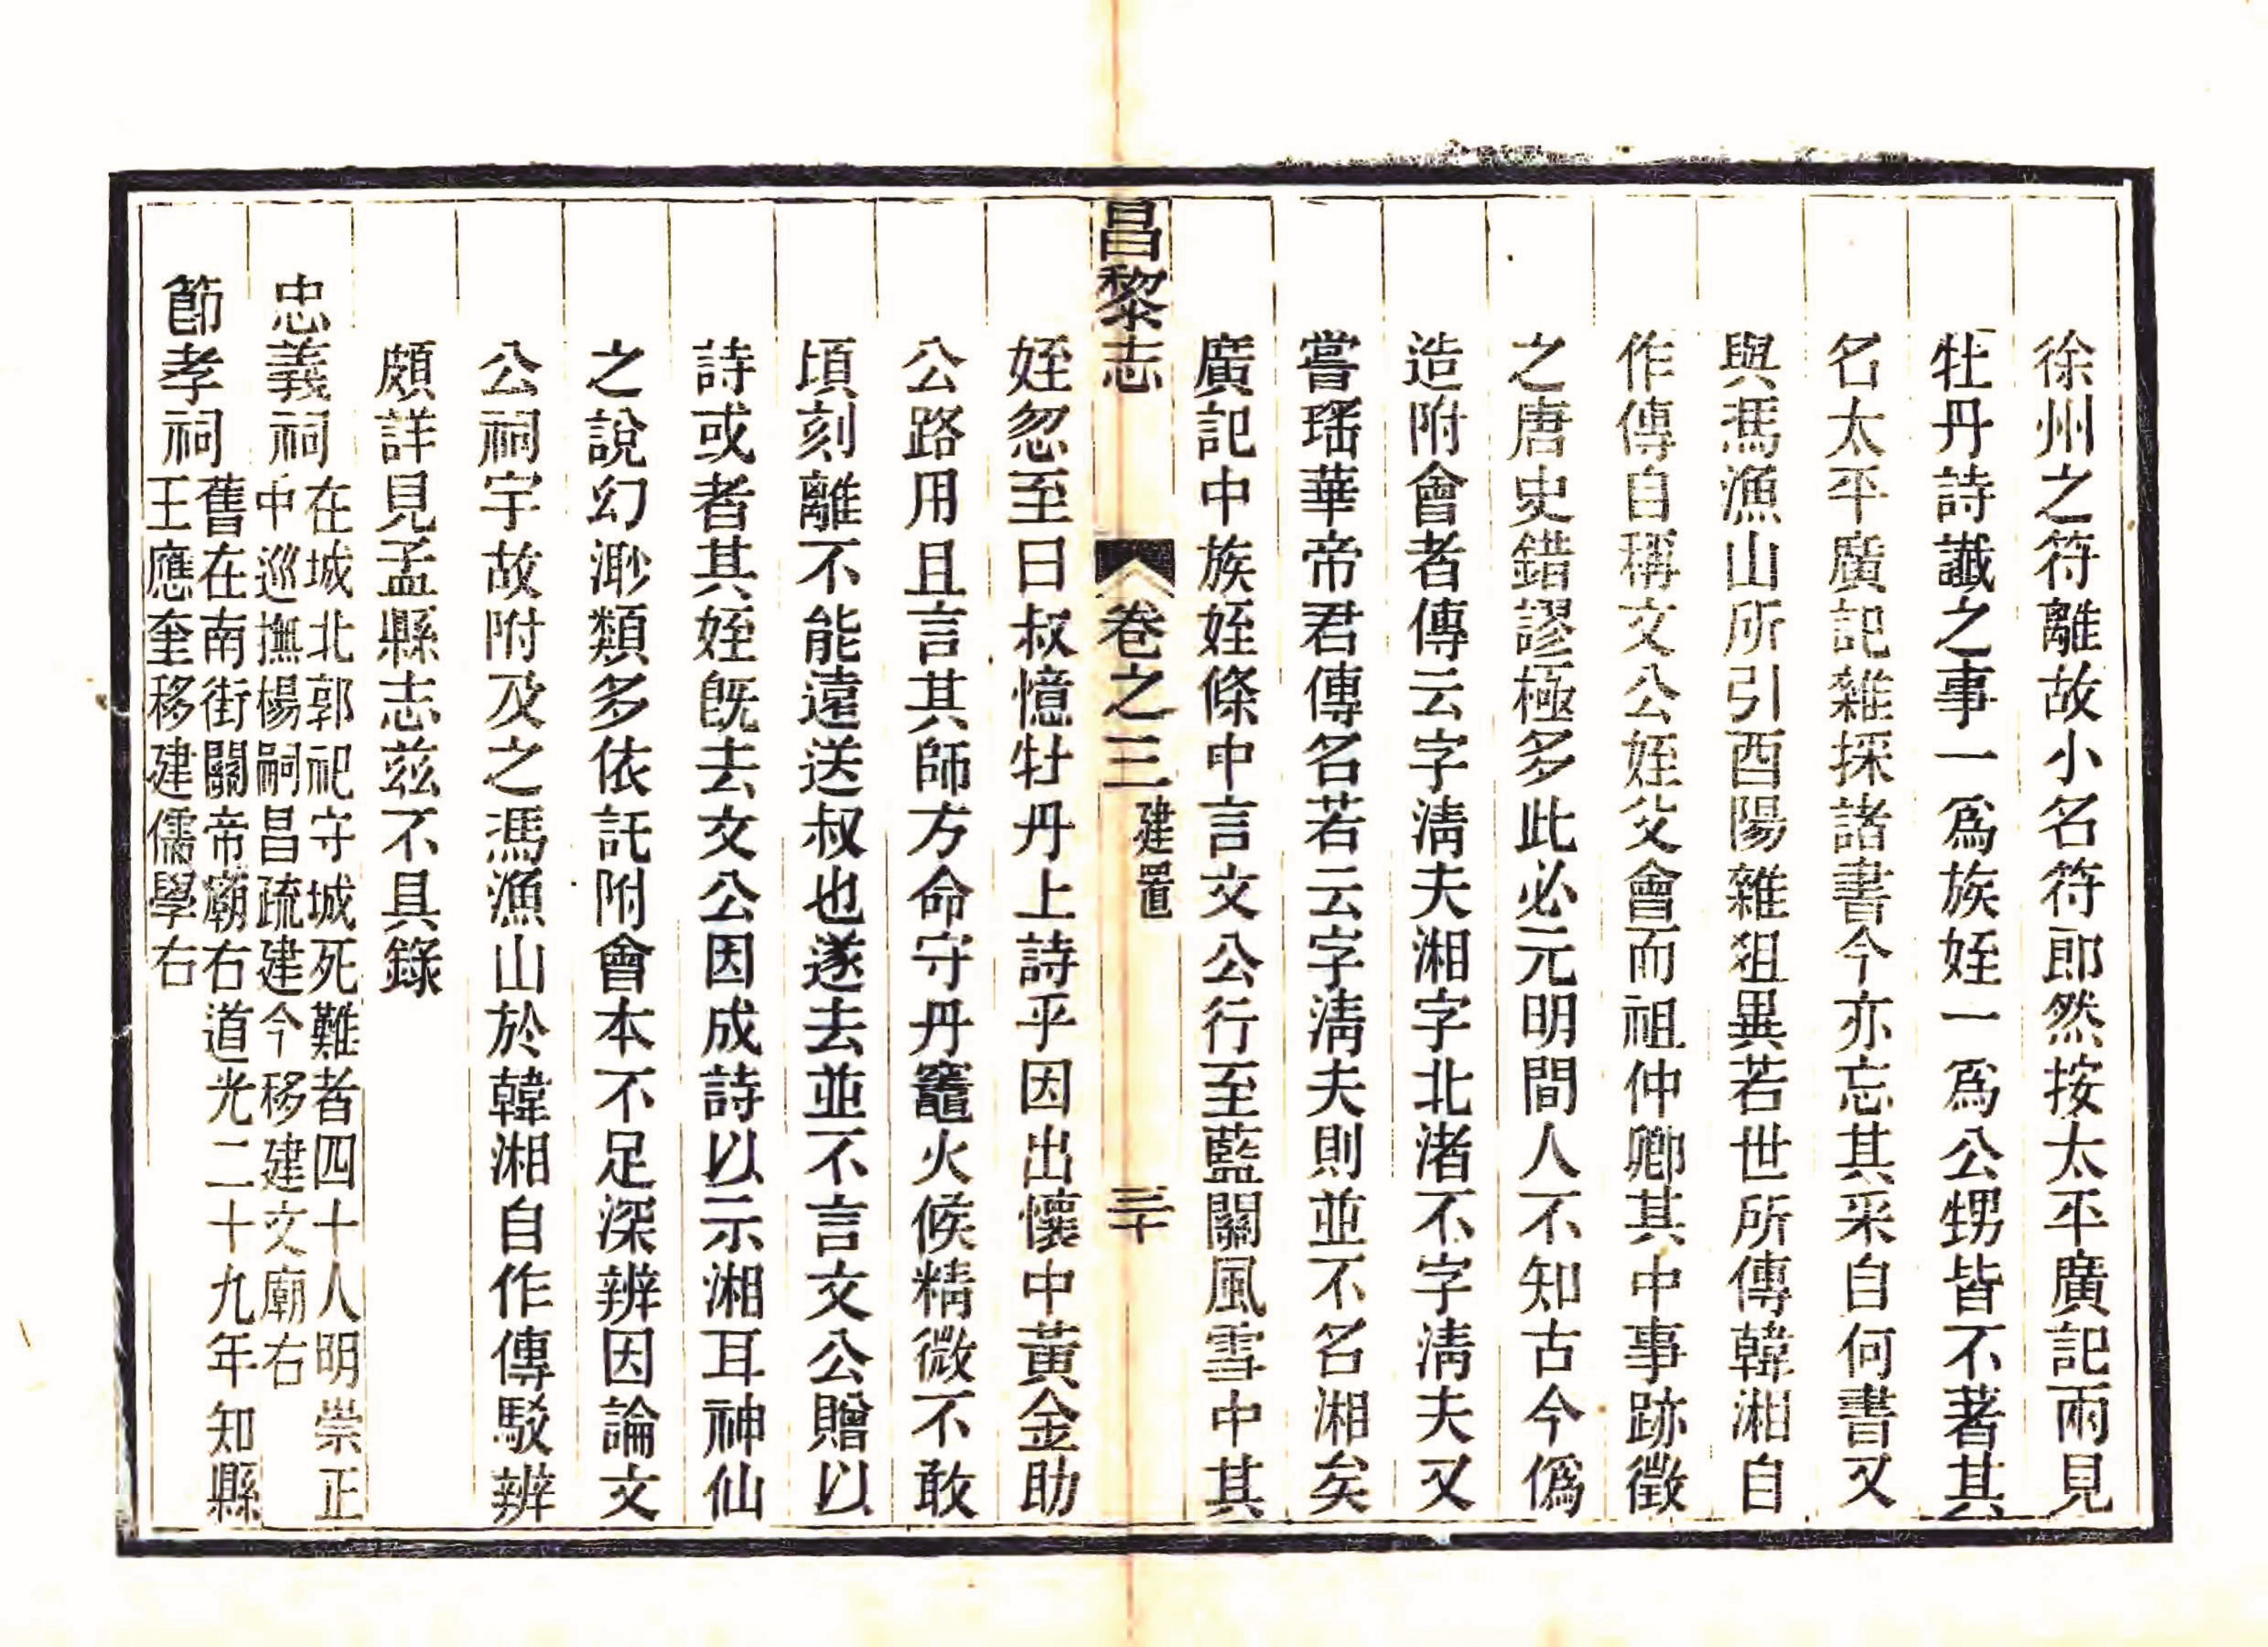 徐州之符離故小名符郎然按太平廣記兩見
牡丹詩讖之事一爲族姪一爲公甥皆不著其
名太平廣記雜採諸書今亦忘其采自何書又
與馮漁山所引酉陽雜俎異若世所傳韓湘自
作傳自稱文公姪父會而祖仲卿其中事跡徵
之唐史錯謬極多此必元明間人不知古今僞
造附會者傳云字淸夫湘字北渚不字淸夫又
嘗瑤華帝君傳名若云字淸夫則並不名湘矣
廣記中族姪條中言文公行至藍關風雪中其
昌黎志 卷之三 建置 三十
姪忽至曰叔憶牡丹上詩乎因出懷中黃金助
公路用且言其師方命守丹竈火候精微不敢
頃刻離不能遠送叔也遂去並不言文公贈以
詩或者其姪旣去文公因成詩以示湘耳神仙
之說幻渺類多依託附會本不足深辨因論文
公祠宇故附及之馮漁山於韓湘自作傳駁辨
頗詳見孟縣志兹不具錄
忠義祠 在城北郭祀守城死難者四十人明崇正
中巡撫楊嗣昌疏建今移建文廟右
節孝祠 舊在南街關帝廟右道光二十九年知縣
王應奎移建儒學右